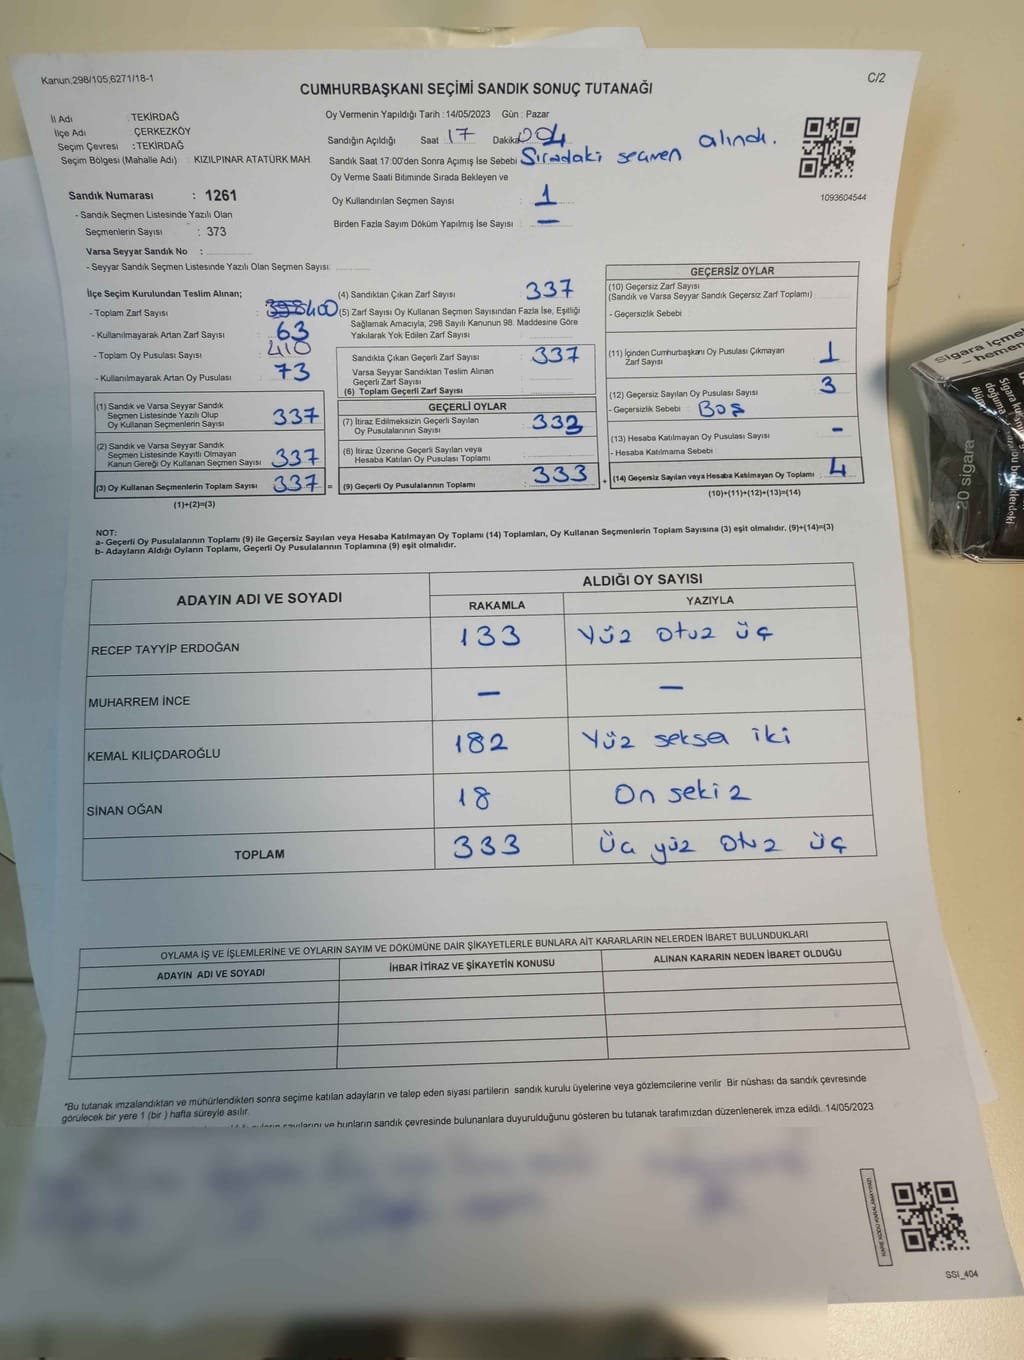 Kanun;298/105;6271/18-1
C/2
CUMHURBAŞKANI SEÇİMİ SANDIK SONUÇ TUTANAĞI
İl Adı : TEKİRDAĞ
İlçe Adı : ÇERKEZKÖY
Seçim Çevresi :TEKİRDAĞ
Seçim Bölgesi (Mahalle Adı) : KIZILPINAR ATATÜRK MAH
Sandık Numarası : 1261
- Sandık Seçmen Listesinde Yazılı Olan
Seçmenlerin Sayısı : 373
Varsa Seyyar Sandık No :
- Seyyar Sandık Seçmen Listesinde Yazılı Olan Seçmen Sayısı:
Oy Vermenin Yapıldığı Tarih : 14/05/2023 Gün : Pazar
Sandığın Açıldığı Saat 17 Dakika 04
Sandık Saat 17:00'den Sonra Açımış İse Sebebi Sıradaki seçmen alındı.
Oy Verme Saati Bitiminde Sırada Bekleyen ve
Oy Kullandırılan Seçmen Sayısı : 1
Birden Fazla Sayım Döküm Yapılmış İse Sayısı : –
1093604544
İlçe Seçim Kurulundan Teslim Alınan;
- Toplam Zarf Sayısı : 400
- Kullanılmayarak Artan Zarf Sayısı : 63
- Toplam Oy Pusulası Sayısı : 410
- Kullanılmayarak Artan Oy Pusulası : 73
(1) Sandık ve Varsa Seyyar Sandık
Seçmen Listesinde Yazılı Olup
Oy Kullanan Seçmenlerin Sayısı 337
(2) Sandık ve Varsa Seyyar Sandık
Seçmen Listesinde Kayıtlı Olmayan
Kanun Gereği Oy Kullanan Seçmen Sayısı 337
(3) Oy Kullanan Seçmenlerin Toplam Sayısı 337 =
(1)+(2)=(3)
(4) Sandıktan Çıkan Zarf Sayısı : 337
(5) Zarf Sayısı Oy Kullanan Seçmen Sayısından Fazla İse, Eşitliği
Sağlamak Amacıyla; 298 Sayılı Kanunun 98. Maddesine Göre
Yakılarak Yok Edilen Zarf Sayısı :
Sandıkta Çıkan Geçerli Zarf Sayısı : 337
Varsa Seyyar Sandıktan Teslim Alınan
Geçerli Zarf Sayısı :
(6) Toplam Geçerli Zarf Sayısı
GEÇERLİ OYLAR
(7) İtiraz Edilmeksizin Geçerli Sayılan
Oy Pusulalarının Sayısı : 333
(8) İtiraz Üzerine Geçerli Sayılan veya
Hesaba Katılan Oy Pusulası Toplamı :
(9) Geçerli Oy Pusulalarının Toplamı : 333 +
GEÇERSİZ OYLAR
(10) Geçersiz Zarf Sayısı
(Sandık ve Varsa Seyyar Sandık Geçersiz Zarf Toplamı) :
- Geçersizlik Sebebi :
(11) İçinden Cumhurbaşkanı Oy Pusulası Çıkmayan
Zarf Sayısı : 1
(12) Geçersiz Sayılan Oy Pusulası Sayısı : 3
- Geçersizlik Sebebi : Boş
(13) Hesaba Katılmayan Oy Pusulası Sayısı : –
- Hesaba Katılmama Sebebi :
(14) Geçersiz Sayılan veya Hesaba Katılmayan Oy Toplamı : 4
(10)+(11)+(12)+(13)=(14)
NOT:
a- Geçerli Oy Pusulalarının Toplamı (9) ile Geçersiz Sayılan veya Hesaba Katılmayan Oy Toplamı (14) Toplamları, Oy Kullanan Seçmenlerin Toplam Sayısına (3) eşit olmalıdır. (9)+(14)=(3)
b- Adayların Aldığı Oyların Toplamı, Geçerli Oy Pusulalarının Toplamına (9) eşit olmalıdır.
ADAYIN ADI VE SOYADI
ALDIĞI OY SAYISI
RAKAMLA YAZIYLA
RECEP TAYYİP ERDOĞAN 133 Yüz otuz üç
MUHARREM İNCE – –
KEMAL KILIÇDAROĞLU 182 Yüz seksa iki
SİNAN OĞAN 18 On sekiz
TOPLAM 333 Üç yüz otuz üç
OYLAMA İŞ VE İŞLEMLERİNE VE OYLARIN SAYIM VE DÖKÜMÜNE DAİR ŞİKAYETLERLE BUNLARA AİT KARARLARIN NELERDEN İBARET BULUNDUKLARI
ADAYIN ADI VE SOYADI İHBAR İTİRAZ VE ŞİKAYETİN KONUSU ALINAN KARARIN NEDEN İBARET OLDUĞU
*Bu tutanak imzalandıktan ve mühürlendikten sonra seçime katılan adayların ve talep eden siyasi partilerin sandık kurulu üyelerine veya gözlemcilerine verilir. Bir nüshası da sandık çevresinde
görülecek bir yere 1 (bir ) hafta süreyle asılır.
sayılarını ve bunların sandık çevresinde bulunanlara duyurulduğunu gösteren bu tutanak tarafımızdan düzenlenerek imza edildi. 14/05/2023
KARE KODU KARALAMAYINIZ!
SSI_404
Sigara içme
– hemen
20 sigara